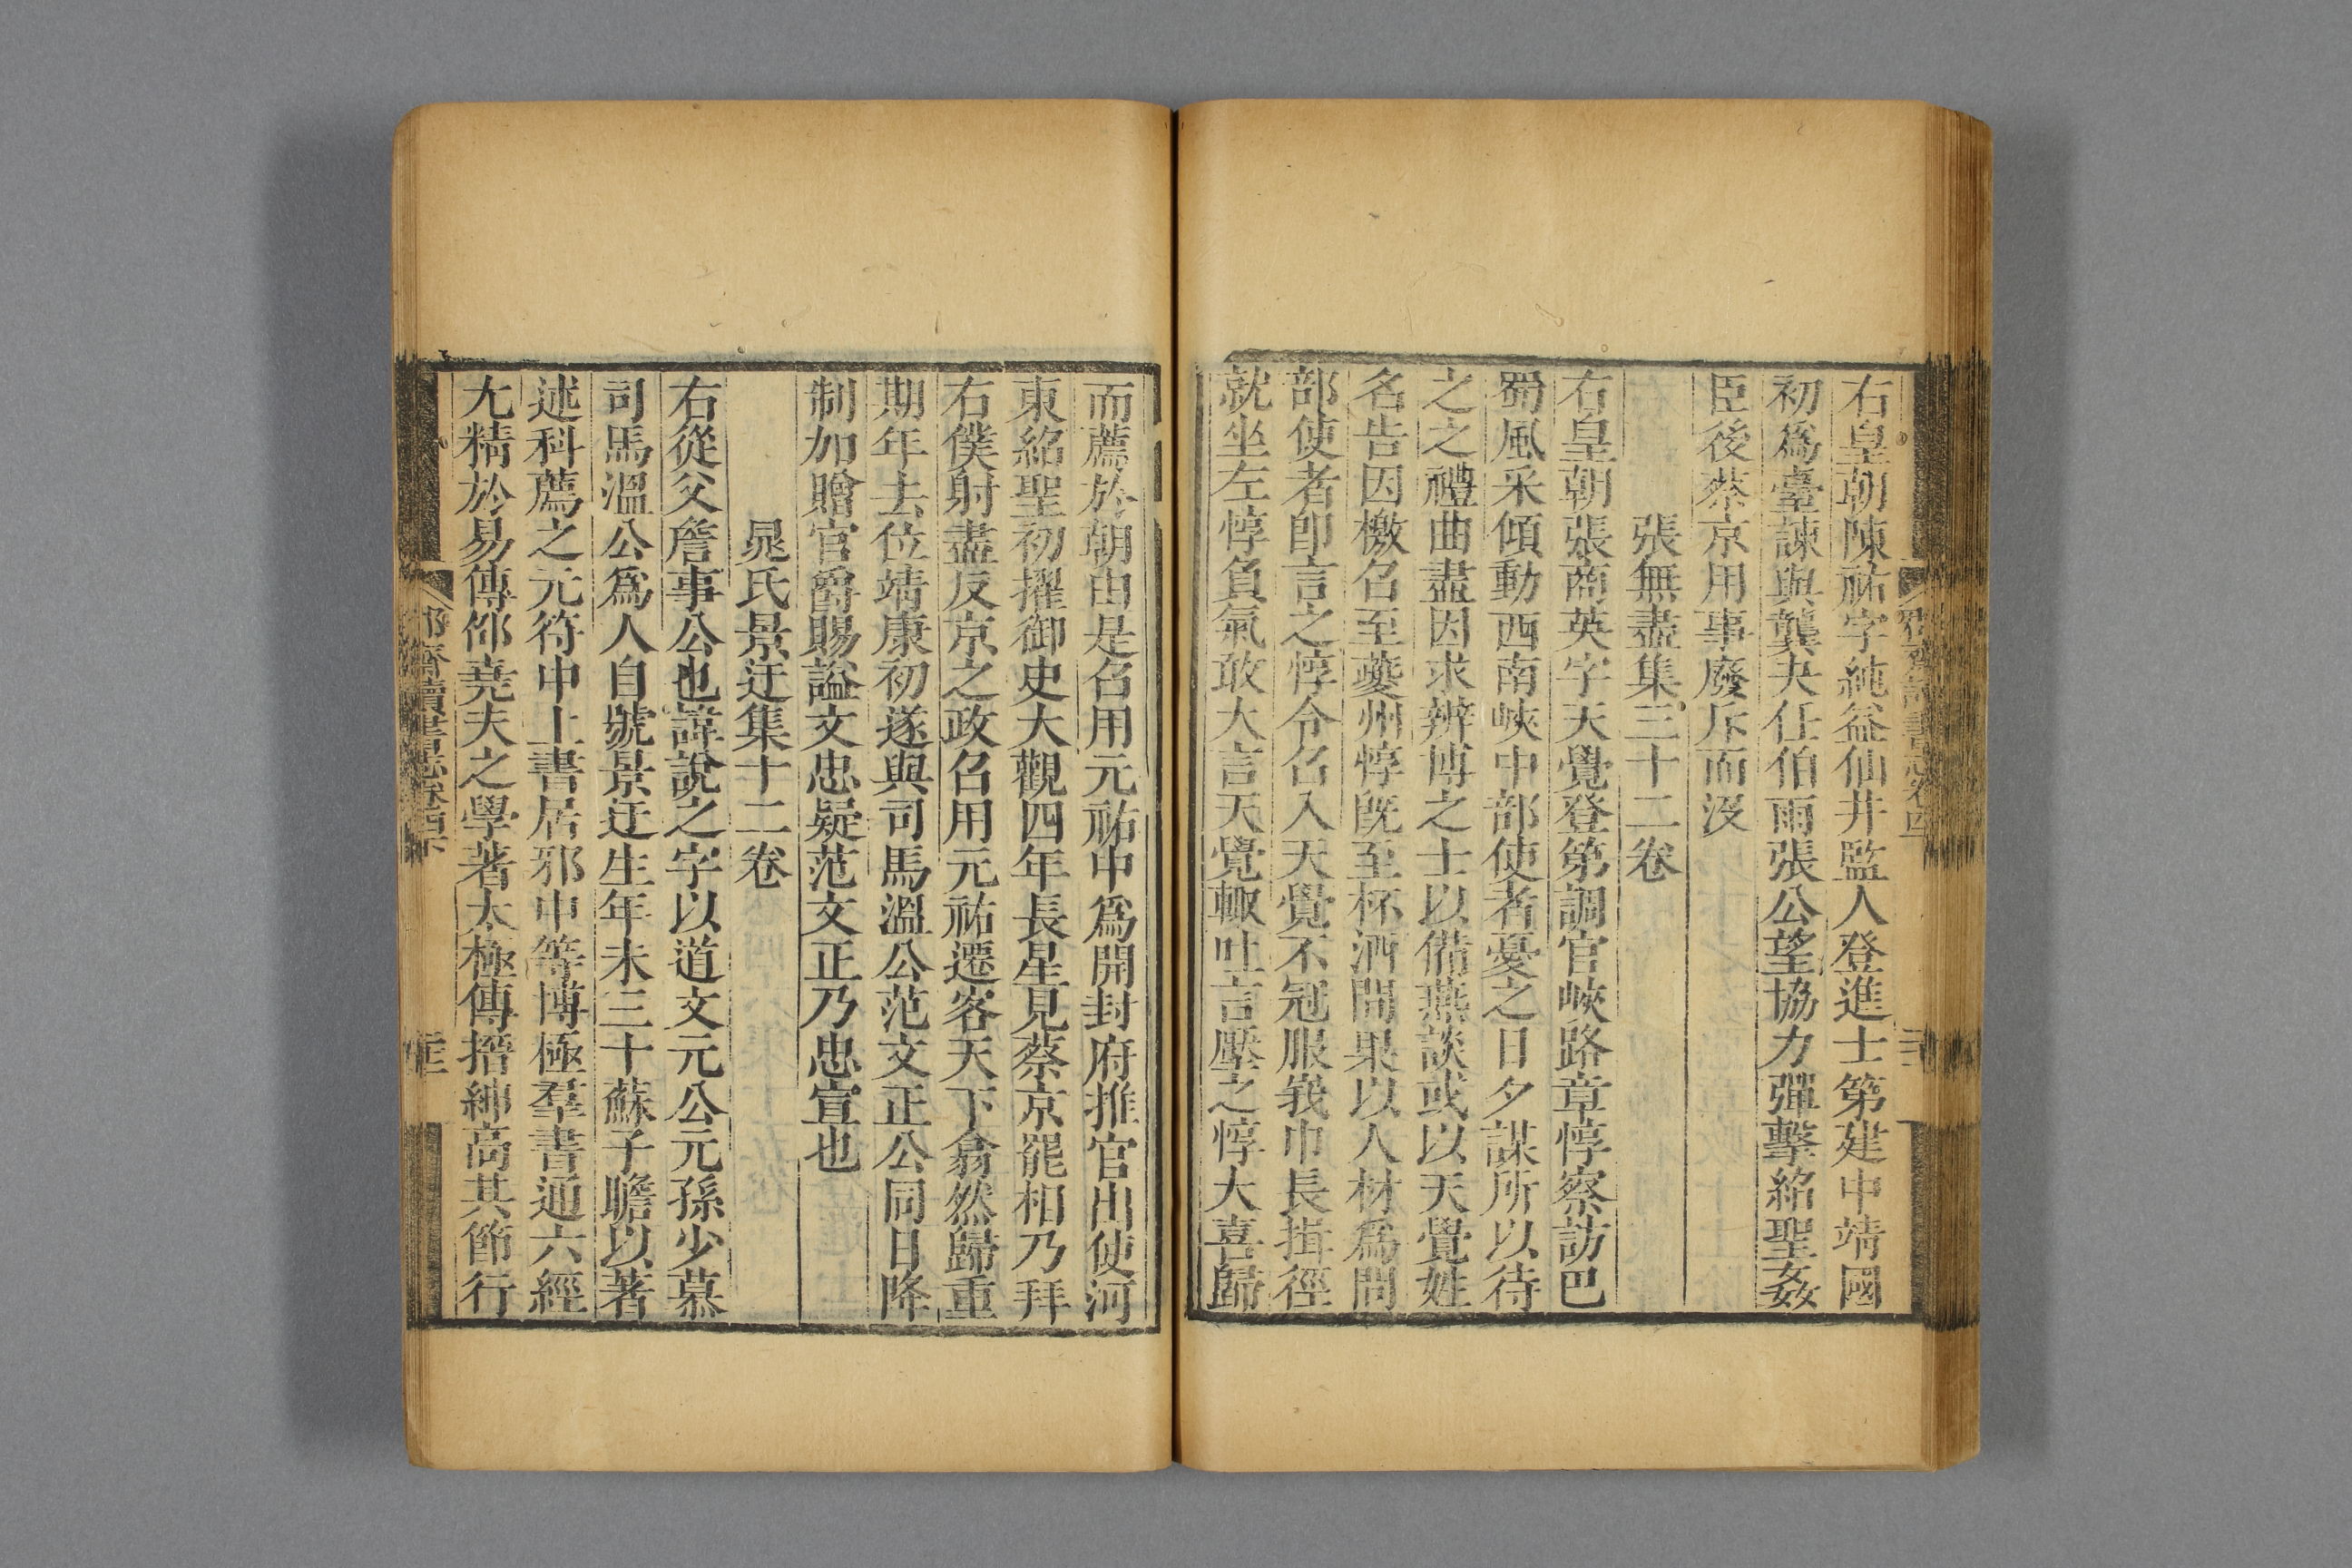 右皇朝陳祐字純益仙井監人登進士第建中靖國
初爲臺諫與龔夬任伯雨張公望協力彈擊紹聖姦
臣後蔡京用事廢斥而沒
張無盡集三十二卷
右皇朝張商英字天覺登第調官峽路章惇察訪巴
蜀風采傾動西南峽中部使者憂之日夕謀所以待
之之禮曲盡因求辨博之士以備燕談或以天覺姓
名告因檄召至夔州惇旣至杯酒間果以人材爲問
部使者卽言之惇令召入天覺不冠服峩巾長揖徑
就坐左惇負氣敢大言天覺輙吐言壓之惇大喜歸
而薦於朝由是召用元祐中爲開封府推官出使河
東紹聖初擢御史大觀四年長星見蔡京罷相乃拜
右僕射盡反京之政召用元祐遷客天下翕然歸重
期年去位靖康初遂與司馬溫公范文正公同日降
制加贈官爵賜謚文忠疑范文正乃忠宣也
晁氏景迂集十二卷
右從父詹事公也諱說之字以道文元公元孫少慕
司馬溫公爲人自號景迂生年未三十蘇子瞻以著
述科薦之元符中上書居邪中等博極羣書通六經
尤精於易傳邵堯夫之學著太極傳搢紳高其節行
郡齋讀書志卷四下